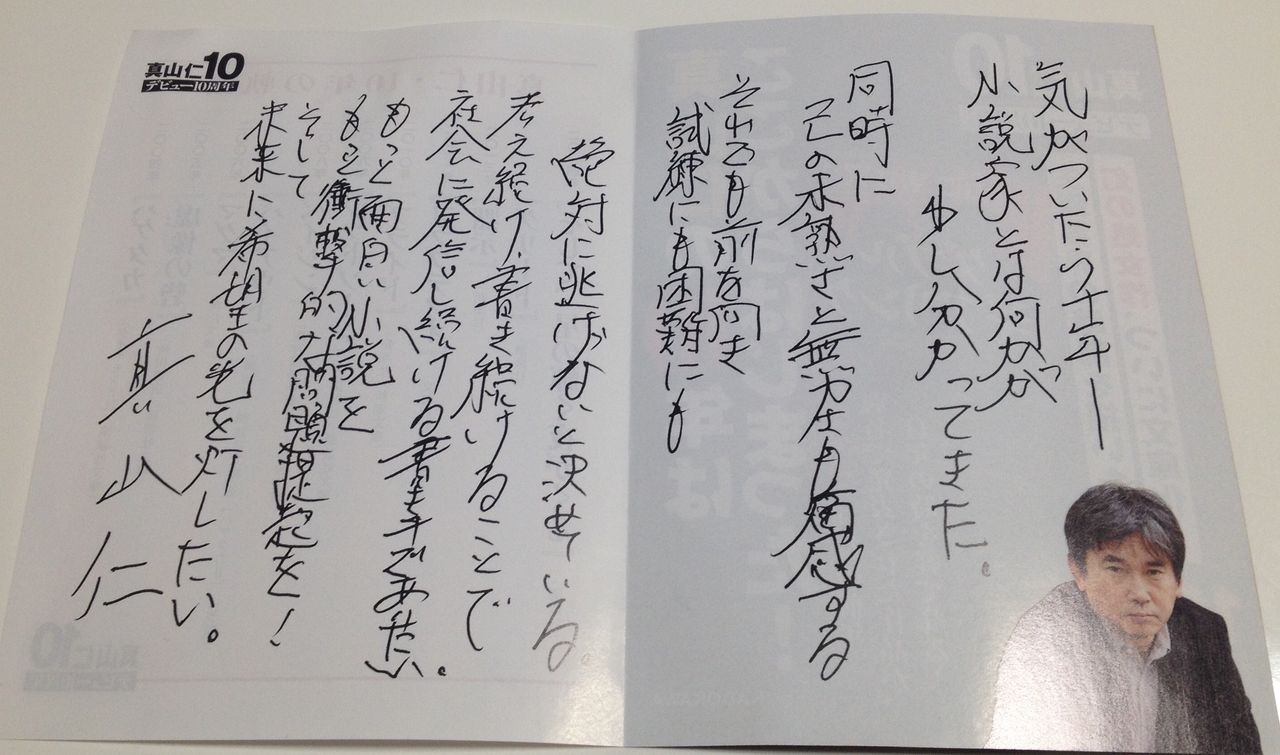 気がついたら十年―
小説家とは何かが
少し分かってきた。
同時に
己の未熟さと無力さも痛感する
それでも前を向き
試練にも困難にも
絶対に逃げないと決めている。
考え続け、書き続けることで
社会に発信し続ける書き手でありたい。
もっと面白い小説を
もっと衝撃的な問題提起を!
そして
未来に希望の光を灯したい。
真山仁
真山仁10
デビュー10周年